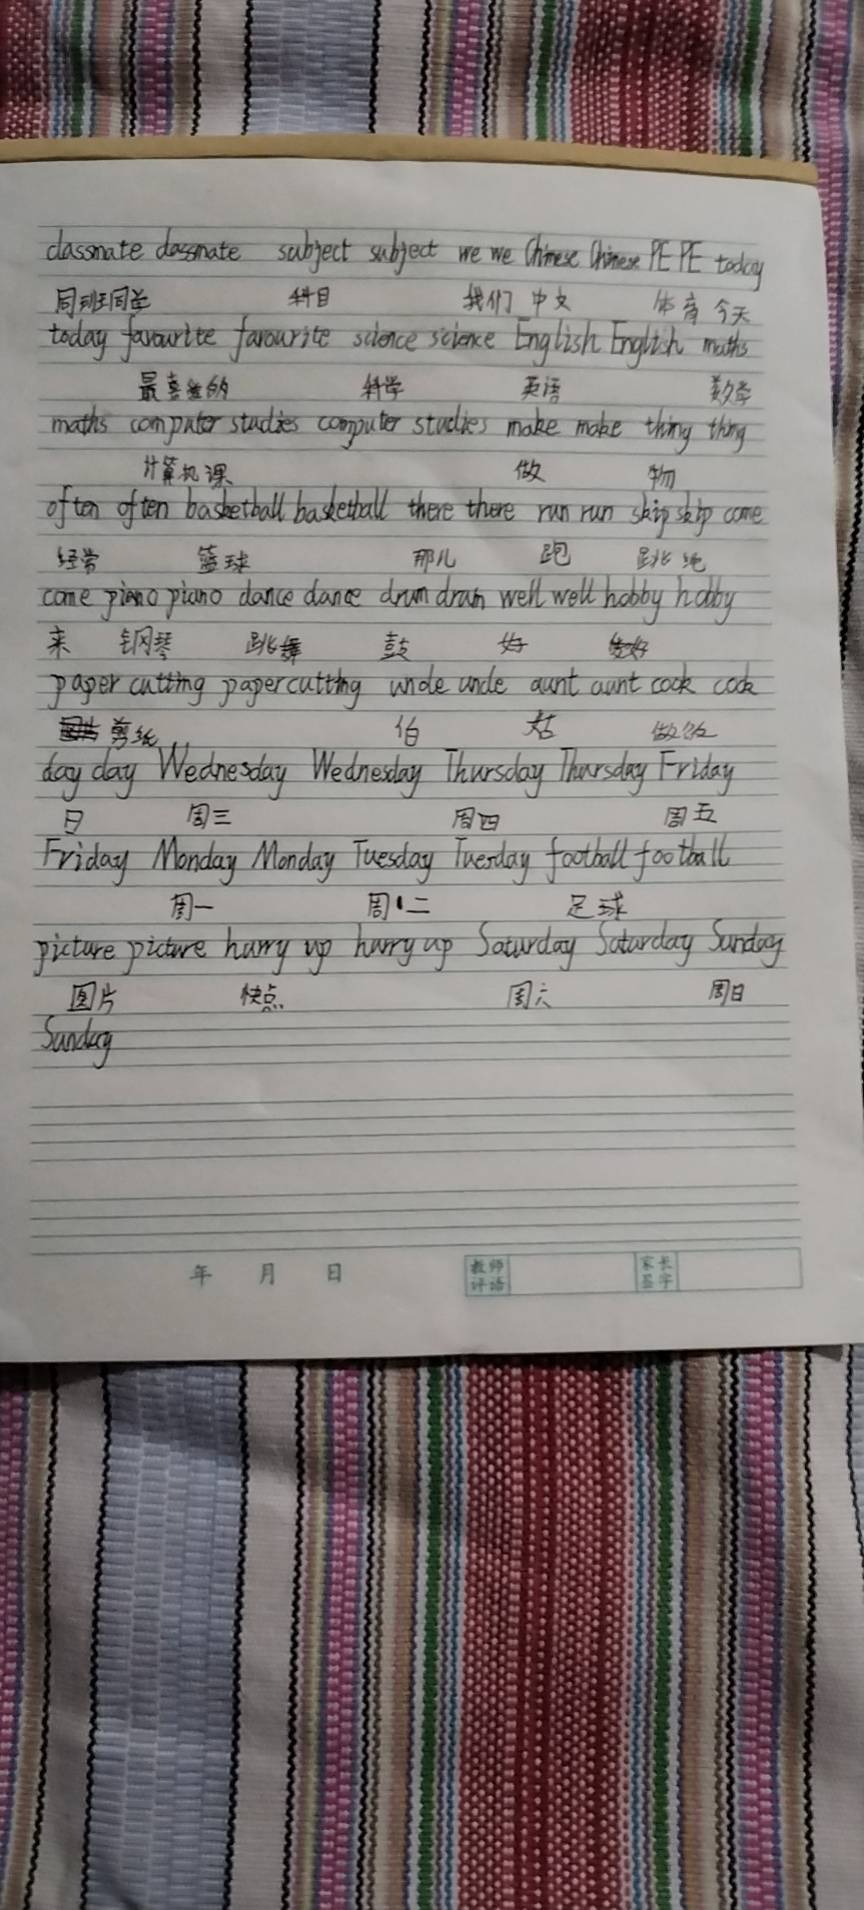 classmate classmate subject subject we we Chinese Chinese PE PE today
同班同学 科目 我们 中文 体育 今天
today favourite favourite science science English English maths
最喜欢的 科学 英语 数学
maths computer studies computer studies make make thing thing
计算机课 做 物
often often basketball basketball there there run run skip skip come
经常 篮球 那儿 跑 跳绳
come piano piano dance dance drum drum well well hobby hobby
来 钢琴 跳舞 鼓 好 爱好
paper cutting paper cutting uncle uncle aunt aunt cook cook
剪纸 伯 姑 做饭
day day Wednesday Wednesday Thursday Thursday Friday
日 周三 周四 周五
Friday Monday Monday Tuesday Tuesday football football
周一 周二 足球
picture picture hurry up hurry up Saturday Saturday Sunday
图片 快点 周六 周日
Sunday
年 月 日 教师评语 家长签字